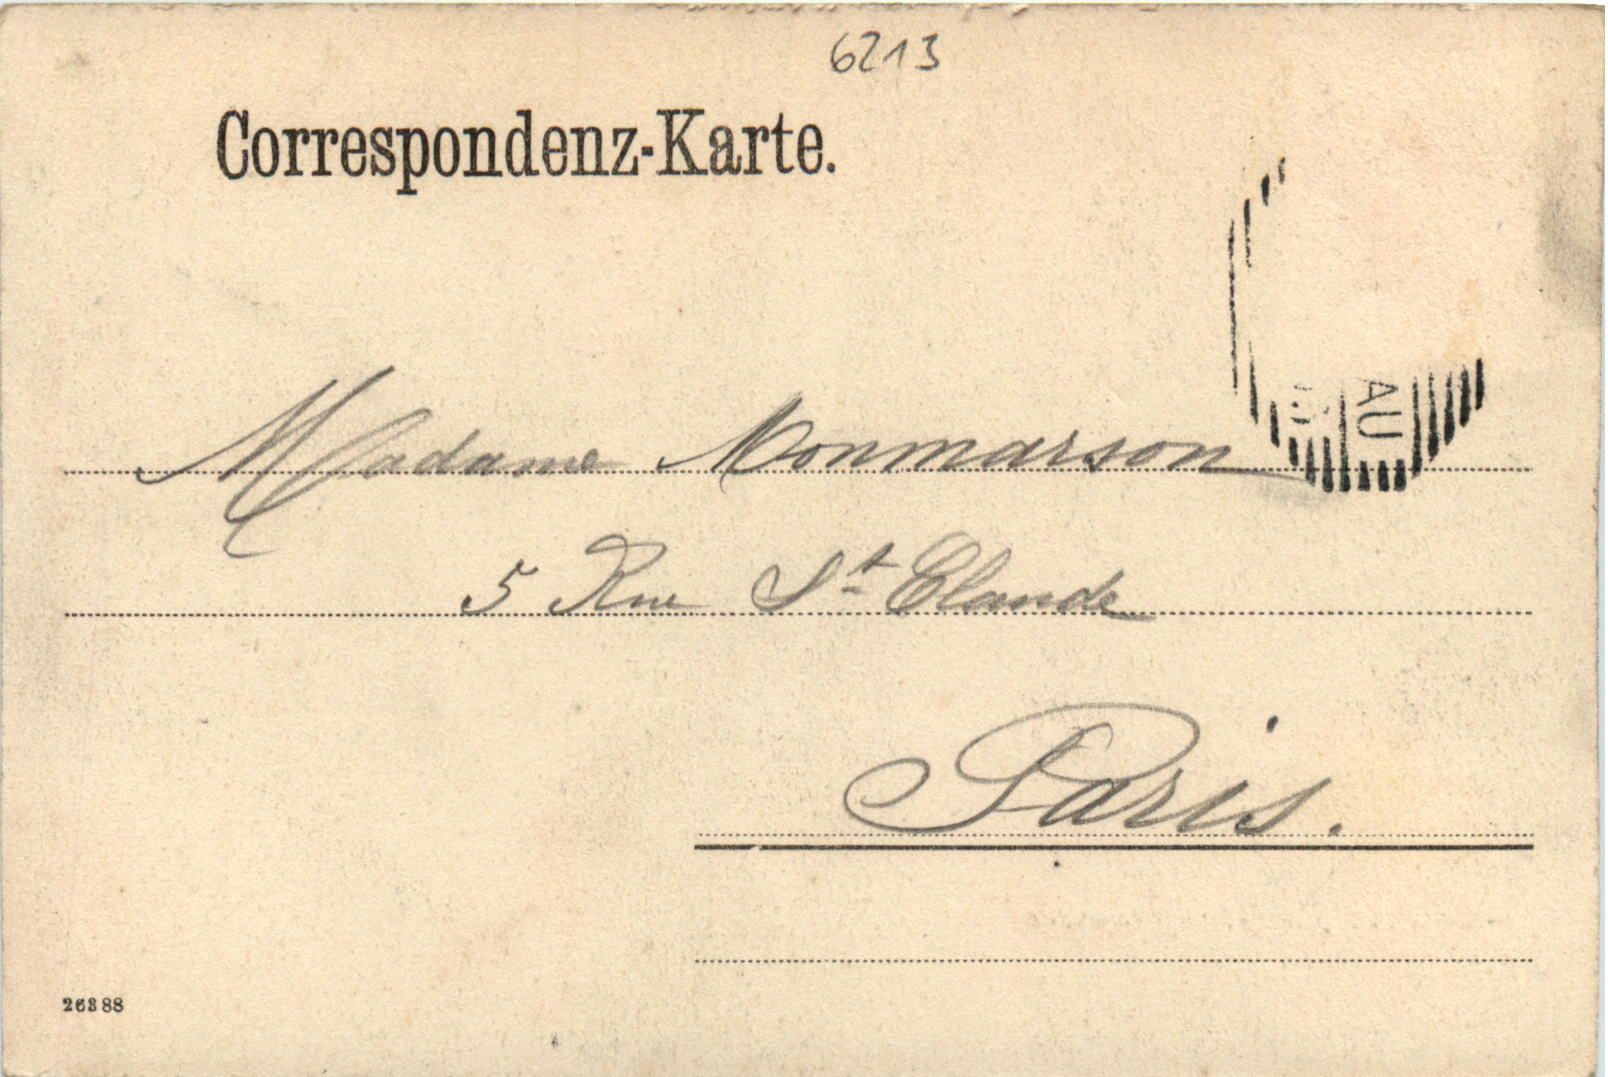 6213
Correspondenz-Karte.
AU
Madame Monmarson
5 Rue St Claude
Paris.
26388